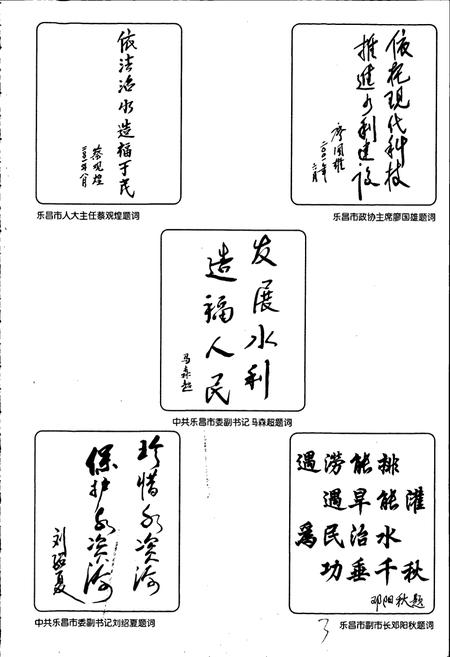 依法治水造福于民
蔡观煌
二〇〇一年八月
乐昌市人大主任蔡观煌题词
依托现代科技
推进水利建设
廖国雄
二〇〇一年
乐昌市政协主席廖国雄题词
发展水利
造福人民
马森超
中共乐昌市委副书记马森超题词
珍惜水资源
保护水资源
刘绍夏
中共乐昌市委副书记刘绍夏题词
遇涝能排
遇旱能灌
為民治水
功垂千秋
邓阳秋题
乐昌市副市长邓阳秋题词
3